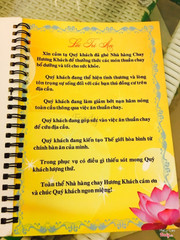 Lời Tri Ân
Xin cảm tạ Quý khách đã ghé Nhà Hàng Chay
Hương Khách để thưởng thức các món thuần chay
bổ dưỡng và tốt cho sức khỏe.
Quý khách đang thể hiện tình thương và lòng
tôn trọng sự sống đối với các bạn thú đồng cư trên
địa cầu.
Quý khách đang làm giảm bớt nạn hâm nóng
toàn cầu thông qua việc ăn thuần chay.
Quý khách đang góp sức vào việc ăn thuần chay
để cứu địa cầu.
Quý khách đang kiến tạo Thế giới hòa bình từ
chính bàn ăn của mình.
Trong phục vụ có điều gì thiếu sót mong Quý
khách lượng thứ.
Toàn thể Nhà hàng chay Hương Khách cảm ơn
và chúc Quý khách ngon miệng!